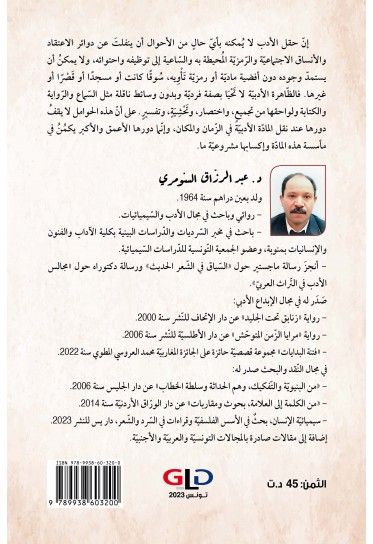 إنّ حقل الأدب لا يُمكنه بأيّ حالٍ من الأحوال أن ينفلتَ عن دوائر الاعتقاد
والأنساق الاجتماعيّة والرّمزيّة المُحيطة به والسّاعية إلى توظيفه واحتوائه، ولا يمكنُ أن
يستمدّ وجوده دون أفضية ماديّة أو رمزيّة تَأويه، سُوقًا كانت أو مسجدًا أو قَصْرًا أو
غيرها. فالظّاهرة الأدبيّة لا تَحْيَا بصفة فرديّة وبدون وسائط ناقلة مثل السّماع والرّواية
والكتابة ولواحقها من تجميعٍ، واختصار، وتَحْشِيَةٍ، وتفسيرٍ. على أنّ هذه الحوامل لا يقفُ
دورها عند نقل المادّة الأدبيّة في الزّمان والمكان، وإنّما دورها الأعمق والأكبر يكمُنُ في
مأسسة هذه المادّة وإكسابها مشروعيّة ما.
د. عبد الرزّاق السّومري
ولد بعين دراهم سنة 1964.
– روائي وباحث في مجال الأدب والسّيميائيات.
– باحث في مخبر السّرديات والدّراسات البينية بكلية الآداب والفنون
والإنسانيات بمنوبة، وعضو الجمعية التّونسية للدّراسات السّيميائية.
– أنجز رسالة ماجستير حول «السّياق في الشّعر الحديث» ورسالة دكتوراه حول «مجالس
الأدب في التّراث العربيّ».
صَدَر له في مجال الإبداع الأدبي:
– رواية «زنابق تحت الجليد» عن دار الإتحاف للنّشر سنة 2000.
– رواية «مرايا الزّمن المتوحّش» عن دار الأطلسيّة للنّشر سنة 2006.
– «فتنة البدايات» مجموعة قصصيّة حائزة على الجائزة المغاربيّة محمد العروسي المطوي سنة 2022.
في مجال النّقد والبحث صدر له:
– «من البنيويّة والتّفكيك، وهم الحداثة وسلطة الخطاب» عن دار الجليس سنة 2006.
– «من الكلمة إلى العلامة، بحوث ومقاربات» عن دار الورّاق الأردنيّة سنة 2014.
– سيميائيّة الإنسان، بحثٌ في الأسس الفلسفيّة وقراءات في السّرد والشّعر، دار يس للنّشر 2023.
إضافة إلى مقالات صادرة بالمجالات التونسيّة والعربيّة والأجنبيّة.
ISBN 978-9938-60-320-0
9 789938 603200
GLD
تونس 2023
الثّمن: 45 د.ت